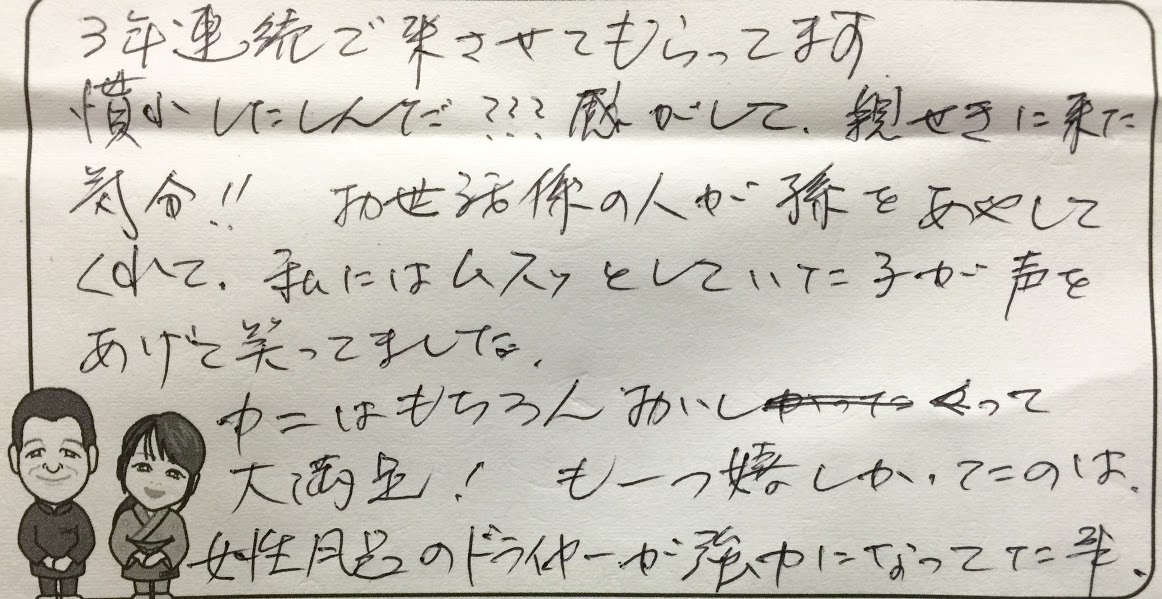 3年連続で来させてもらってます
慣れ親しんだ??? 感がして、親せきに来た
気分!! お世話係の人が孫をあやして
くれて、私にはムスッとしていた子が声を
あげて笑ってました。
カニはもちろんおいしかったくって
大満足! も一つ嬉しかったのは、
女性風呂のドライヤーが強力になってた事、